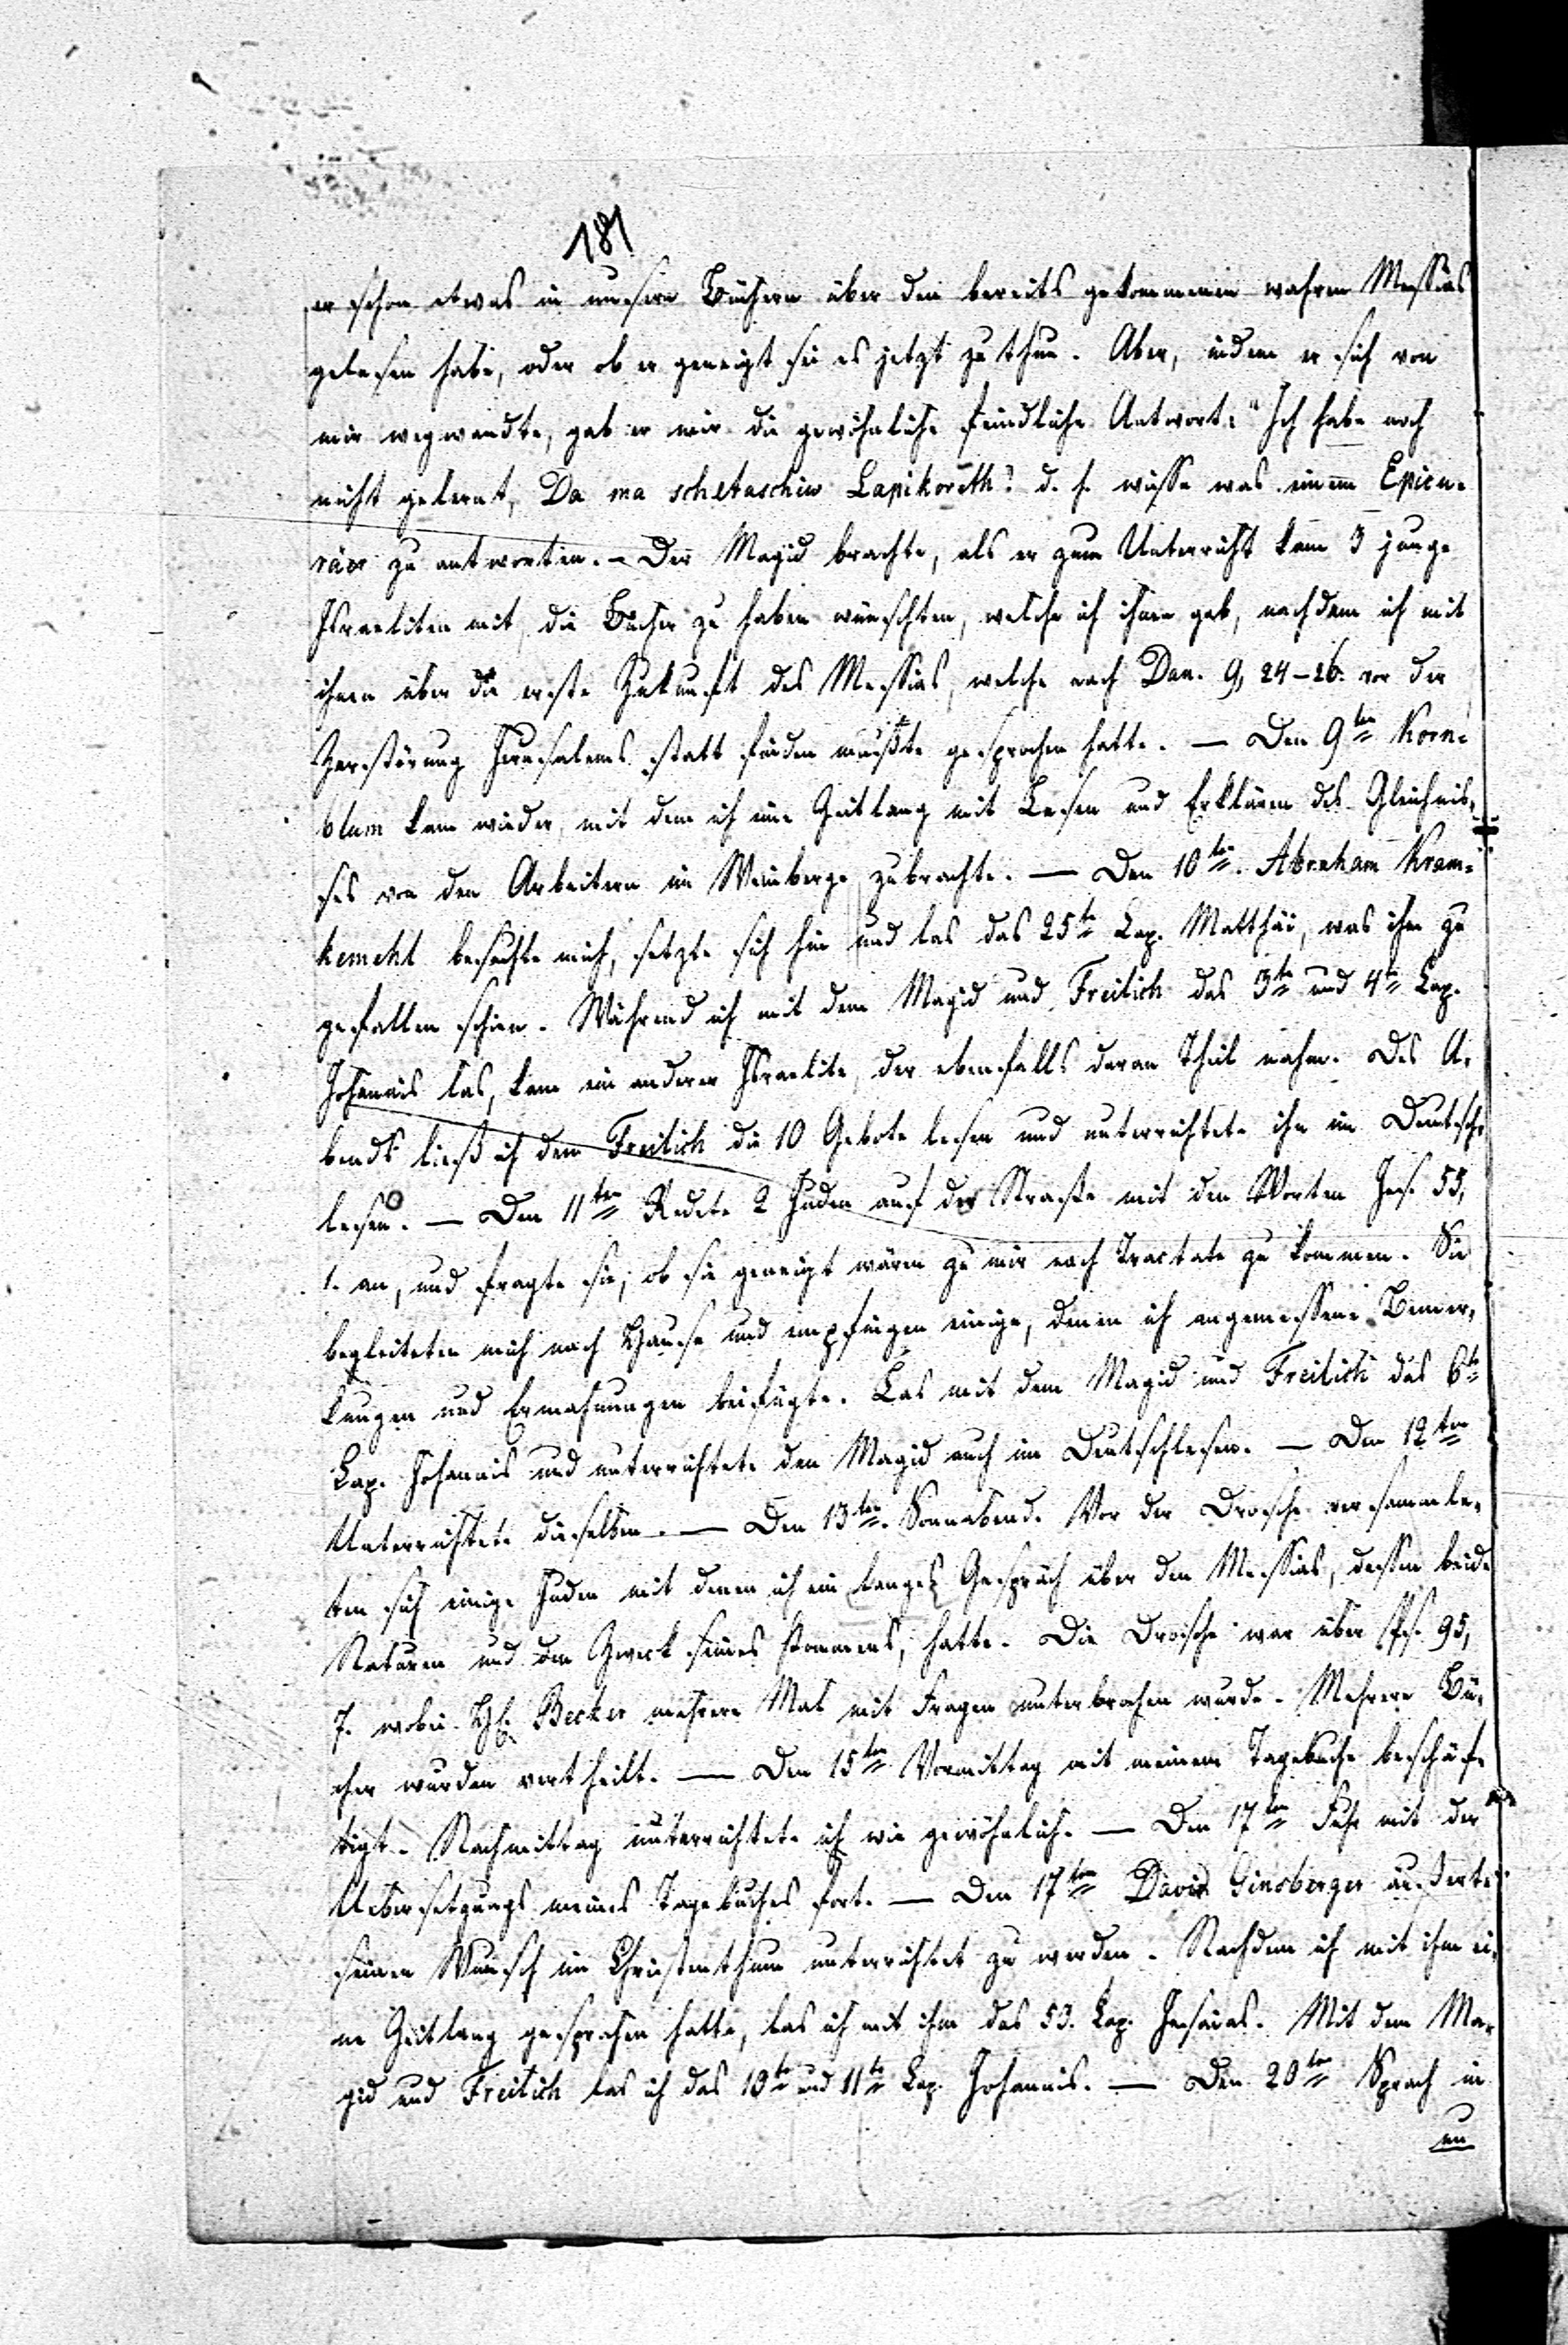 181
er schon etwas in unsern Büchern über den bereits gekommenen wahren Messias
gelesen habe, oder ob er geneigt sei es jetzt zu thun. Aber, indem er sich von
mir wegwendte, gab er mir die gewöhnliche feindliche Antwort: "Ich habe noch
nicht gelernt, Da ma schetaschiw Lapikoreth? d. h. wisse was einem Epicu-
räer zu antworten. – Der Magid brachte, als er zum Unterricht kam 3 junge
Israeliten mit, die Bücher zu haben wünschten, welche ich ihnen gab, nachdem ich mit
ihnen über die erste Zukunft des Messias, welche nach Dan. 9, 24–26. vor der
Zerstörung Jerusalems statt finden mußte gesprochen hatte. — Den 9ten Korn-
blum kam wieder, mit dem ich eine Zeitlang mit Lesen und Erklären des Gleichnis-
ses von den Arbeitern im Weinberge zubrachte. — Den 10ten. Abraham Kram-
kemeht besuchte mich, setzte sich hin und las das 25te Cap. Matthäi, was ihm zu
gefallen schien. Während ich mit dem Magid und Freilich das 3te und 4te Cap.
Johannis las, kam ein anderer Israelite, der ebenfalls daran Theil nahm. Des A-
bends ließ ich den Freilich die 10 Gebote lesen und unterrichtete ihn im Deutsch-
lesen. — Den 11ten Redete 2 Juden auf der Straße mit den Worten Jes. 55,
1. an, und fragte sie, ob sie geneigt wären zu mir nach Tractate zu kommen. Sie
begleiteten mich nach Hause und empfingen einige, denen ich angemessene Bemer-
kungen und Ermahnungen beifügte. Las mit dem Magid und Freilich das 6te
Cap. Johannis und unterrichtete den Magid auch im Deutschlesen. — Den 12ten
Unterrichtete dieselben. — Den 13ten. Sonnabend. Vor der Drosche versammle-
ten sich einige Juden mit denen ich ein langes Gespräch über den Messias, dessen beide
Naturen und den Zweck seines Kommens, hatte. Die Drosche war über Ps. 95,
7. wobei H. Becker mehrere Mal mit Fragen unterbrochen wurde. Mehrere Bü-
cher wurden vertheilt. — Den 15ten Vormittag mit meinem Tagebuche beschäf-
tigt. Nachmittag unterrichtete ich wie gewöhnlich. — Den 17ten Fuhr mit der
Uebersetzung meines Tagebuches fort. — Den 17ten David Ginsberger äußerte
seinen Wunsch im Christenthum unterrichtet zu werden. Nachdem ich mit ihm ei-
ne Zeitlang gesprochen hatte, las ich mit ihm das 53. Cap. Jesaias. Mit dem Ma-
gid und Freilich las ich das 10te und 11te Cap. Johannis. — Den 20ten Sprach in